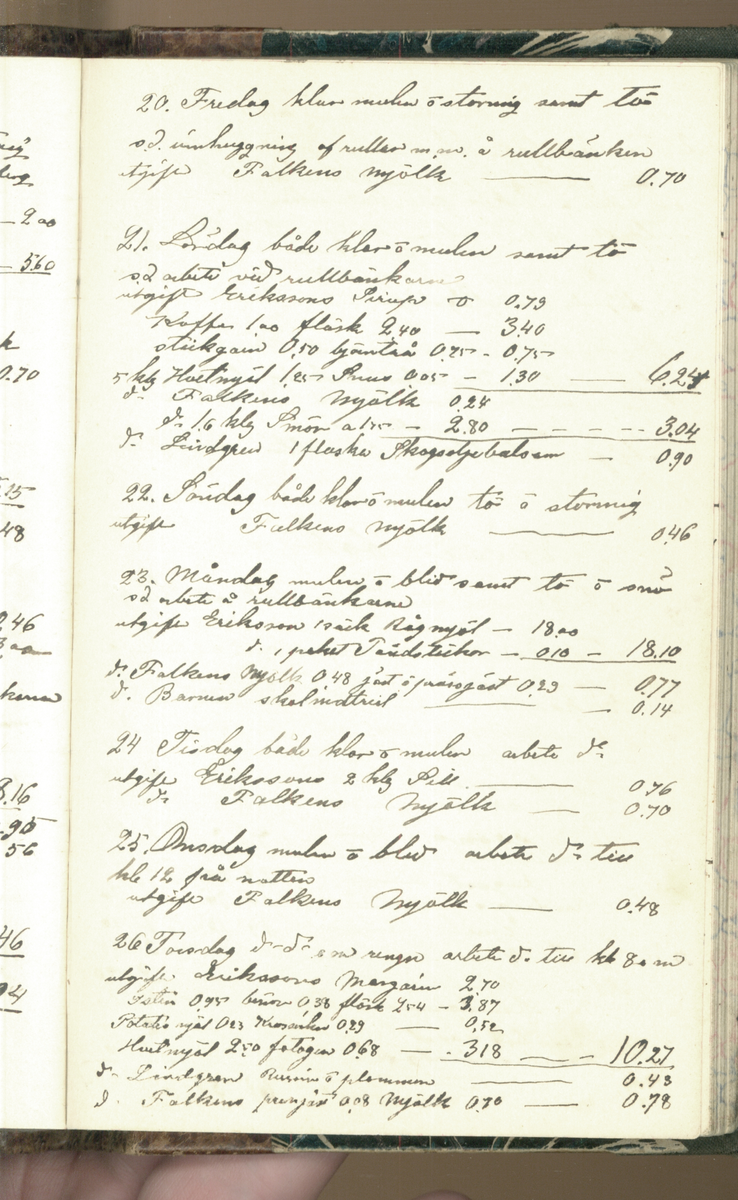 20. Fredag klar mulen o stormig samt tö
s.d. inhuggning af rullar m.m. å rullbänken
utgift Falkens Mjölk — 0.70
21. Lördag både klar o mulen samt tö
s.d arbete vid rullbänkarne
utgift Erikssons Sirup 0.79
Kaffe 1,00 fläsk 2.40 — 3.40
0.50 0.25 - 0.75
5 klg Hvetmjöl 1,25 Snus 0.05 - 1.30 — 6.24
d:o Falkens Mjölk 0.24
d:o 1.6 klg Smör a 1.75 - 2.80 - - - - 3.04
d:o Lindgren 1 flaska — 0.90
22. Söndag både klar o mulen tö o stormig
utgift Falkens Mjölk — 0.46
23. Måndag mulen o blid samt tö o snö
s.d arbete å rullbänkarne
utgift Eriksson 1 säck Rågmjöl — 18.00
d:o 1 paket Tändstickor — 0.10 - 18.10
d:o Falkens Mjölk 0.48 jäst o pressjäst 0.29 — 0.77
d:o Barnen skolmatriel — 0.14
24 Tisdag både klar o mulen arbete d:o
utgift Erikssons 2 klg Sill — 0.76
d:o Falkens Mjölk — 0.70
25. Onsdag mulen o blid arbete d:o till
kl. 12 på natten
utgift Falkens Mjölk — 0.48
26 Torsdag d:o d:o e m regn arbete d:o till kl 8 e m
utgift Erikssons Margarin 2.70
0.95 0.38 fläsk 2.54 - 3.87
Potatismjöl 0.23 0.29 — 0.52
Hvetmjöl 2.50 fotogen 0.68 — 3.18 — 10.27
d:o Lindgren Russin o plommon — 0.43
d:o Falkens 0.08 Mjölk 0.70 — 0.78
2.00
5.60
0.70